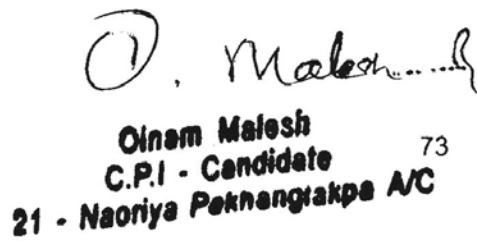 O. Malesh
Oinam Malesh
C.P.I - Candidate
73
21 - Naoriya Pakhanglakpa A/C